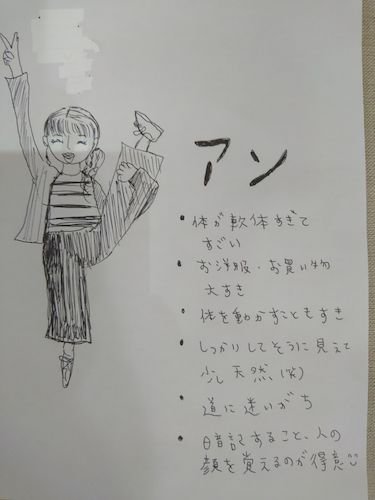 アン
• 体が軟体すぎて
すごい
• お洋服・お買い物
大すき
• 体を動かすこともすき
• しっかりしてそうに見えて
少し天然(笑)
• 道に迷いがち
• 暗記すること、人の
顔を覚えるのが得意